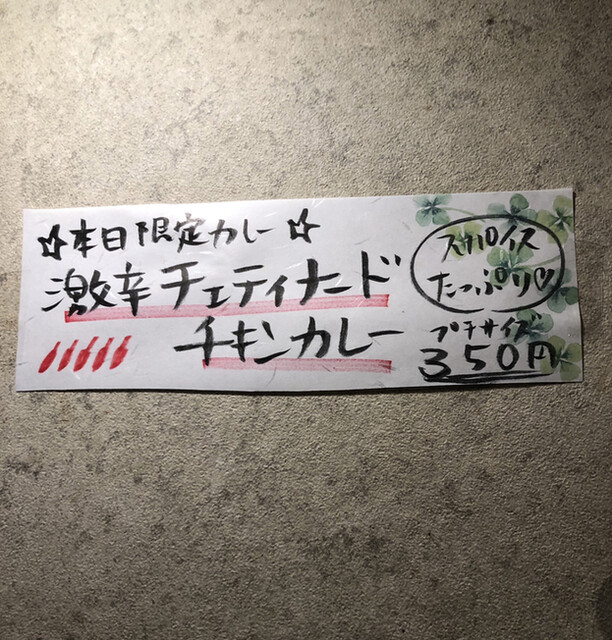 ☆本日限定カレー☆
激辛チェティナード
チキンカレー
スパイス
たっぷり♡
プチサイズ
350円